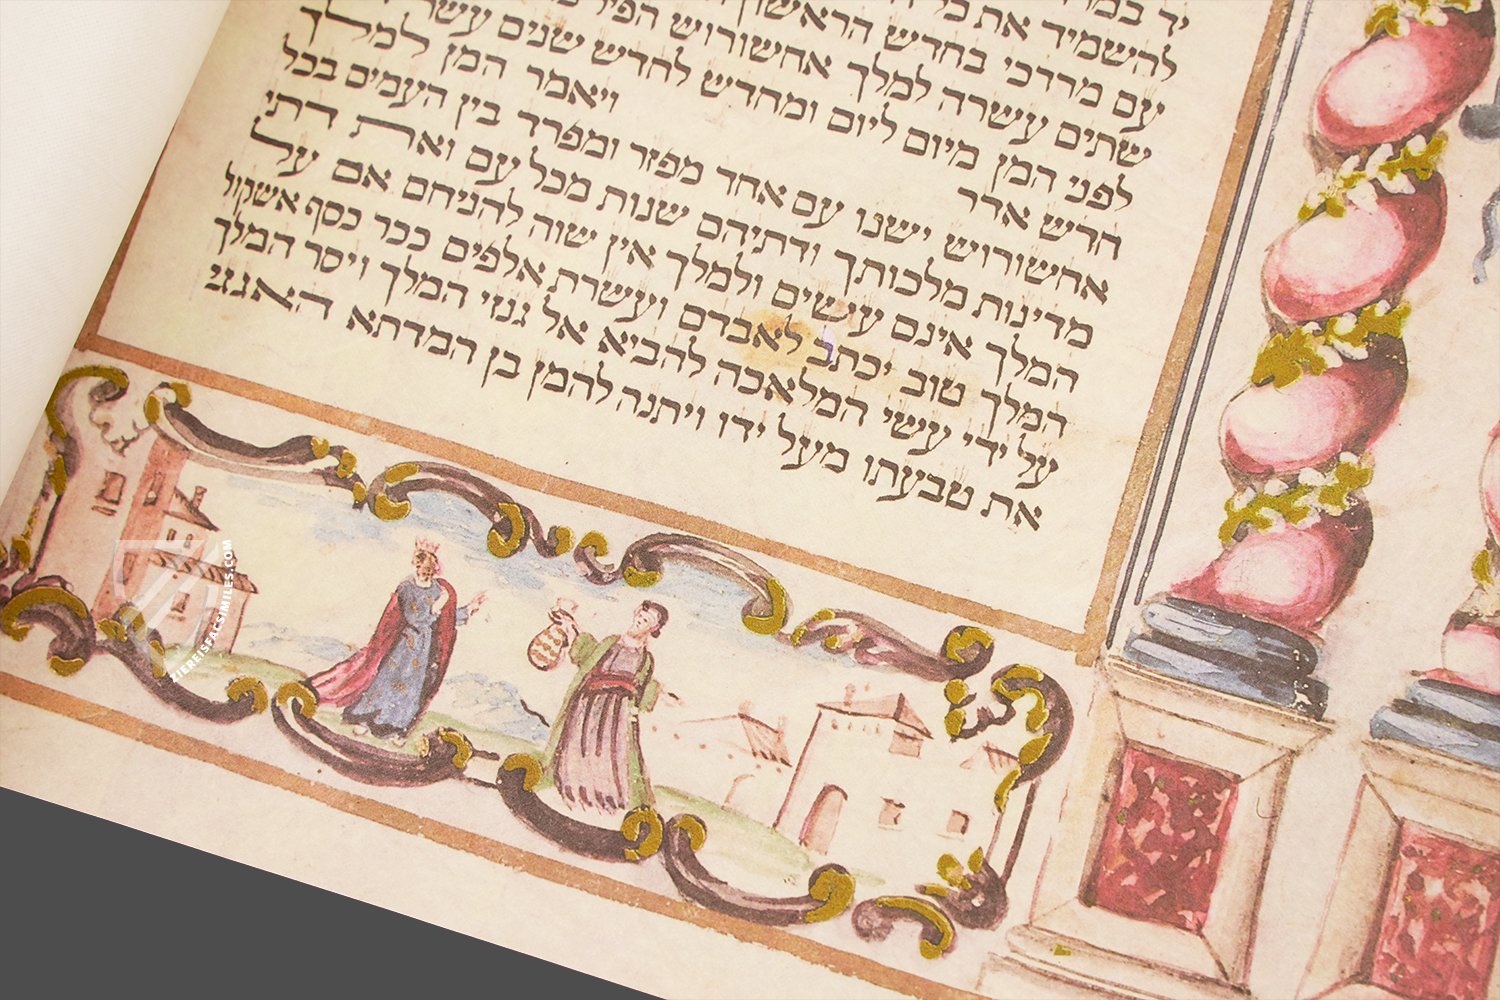 יד
להשמיד את כל
עם מרדכי בחדש הראשון
שתים עשרה למלך אחשורוש הפיל
לפני המן מיום ליום ומחדש לחדש שנים עשר
חדש אדר ויאמר המן למלך
אחשורוש ישנו עם אחד מפזר ומפרד בין העמים בכל
מדינות מלכותך ודתיהם שנות מכל עם ואת דתי
המלך אינם עשים ולמלך אין שוה להניחם אם על
המלך טוב יכתב לאבדם ועשרת אלפים ככר כסף אשקול
על ידי עשי המלאכה להביא אל גנזי המלך ויסר המלך
את טבעתו מעל ידו ויתנה להמן בן המדתא האגגי
ZIEREISFACSIMILES.COM